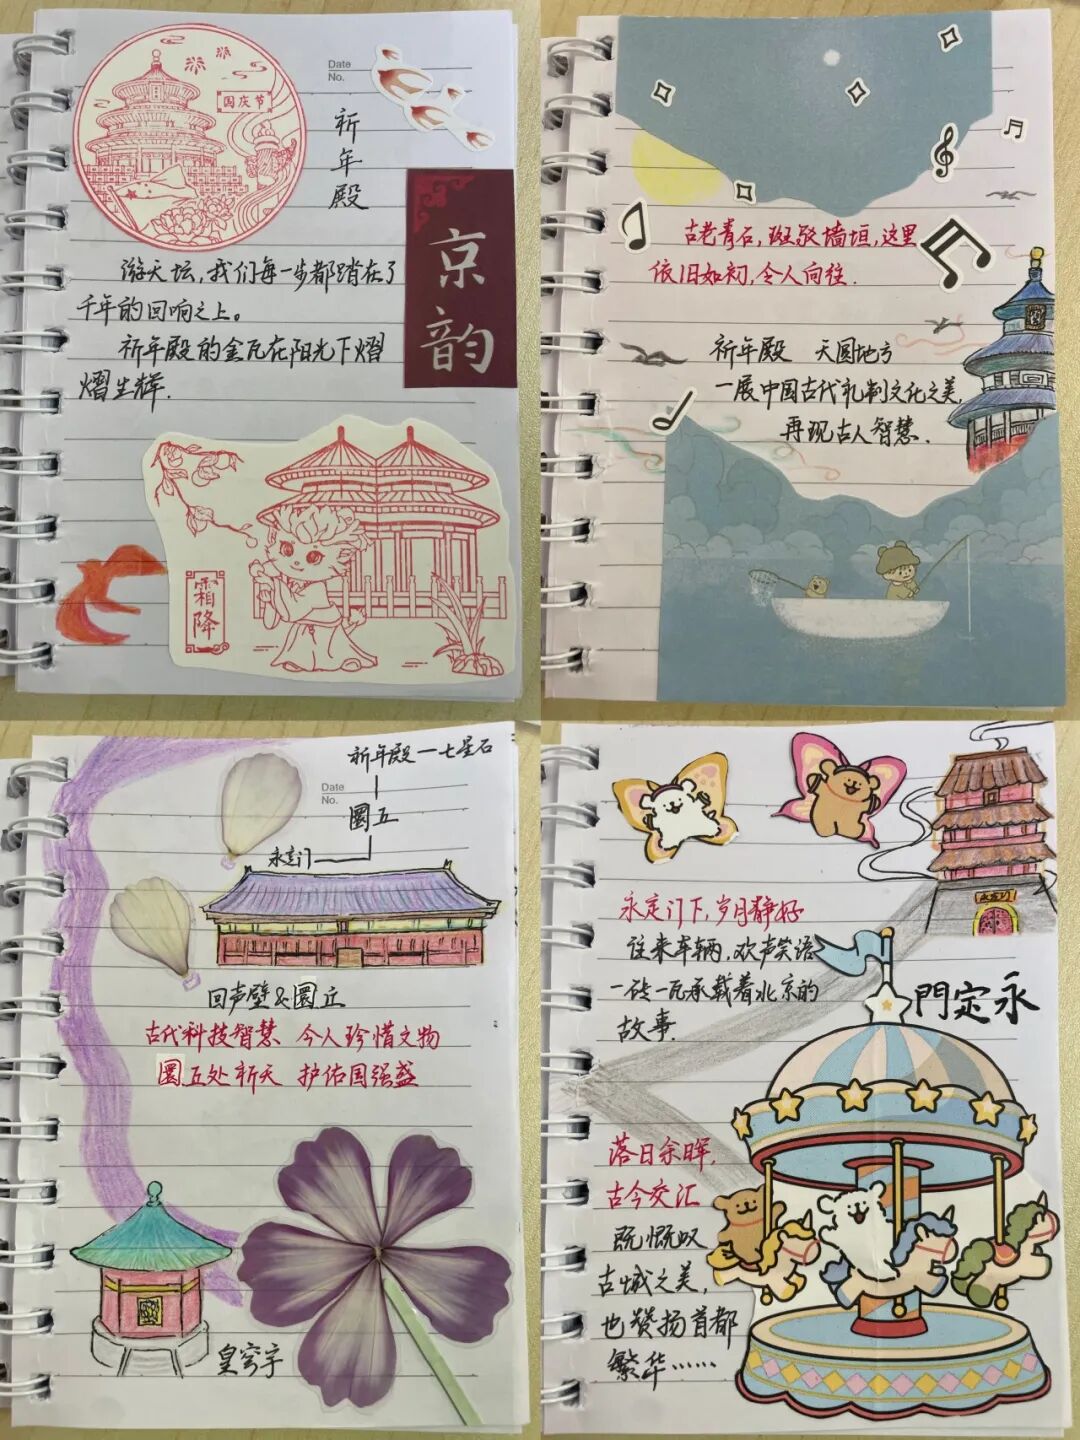 国庆节
Date
No.
祈年殿
京韵
游天坛,我们每一步都踏在了
千年的回响之上。
祈年殿的金瓦在阳光下熠
熠生辉.
霜降
古老青石,斑驳墙垣,这里
依旧如初,令人向往.
祈年殿 天圆地方
一展中国古代礼制文化之美,
再现古人智慧.
祈年殿—七星石
Date
No.
圜丘
永定门
回声壁&圜丘
古代科技智慧 今人珍惜文物
圜丘处祈天 护佑国强盛
皇穹宇
永定门
永定门下,岁月静好
往来车辆,欢声笑语
一砖一瓦承载着北京的
故事.
門定永
落日余晖,
古今交汇
既慨叹
古城之美,
也赞扬首都
繁华……